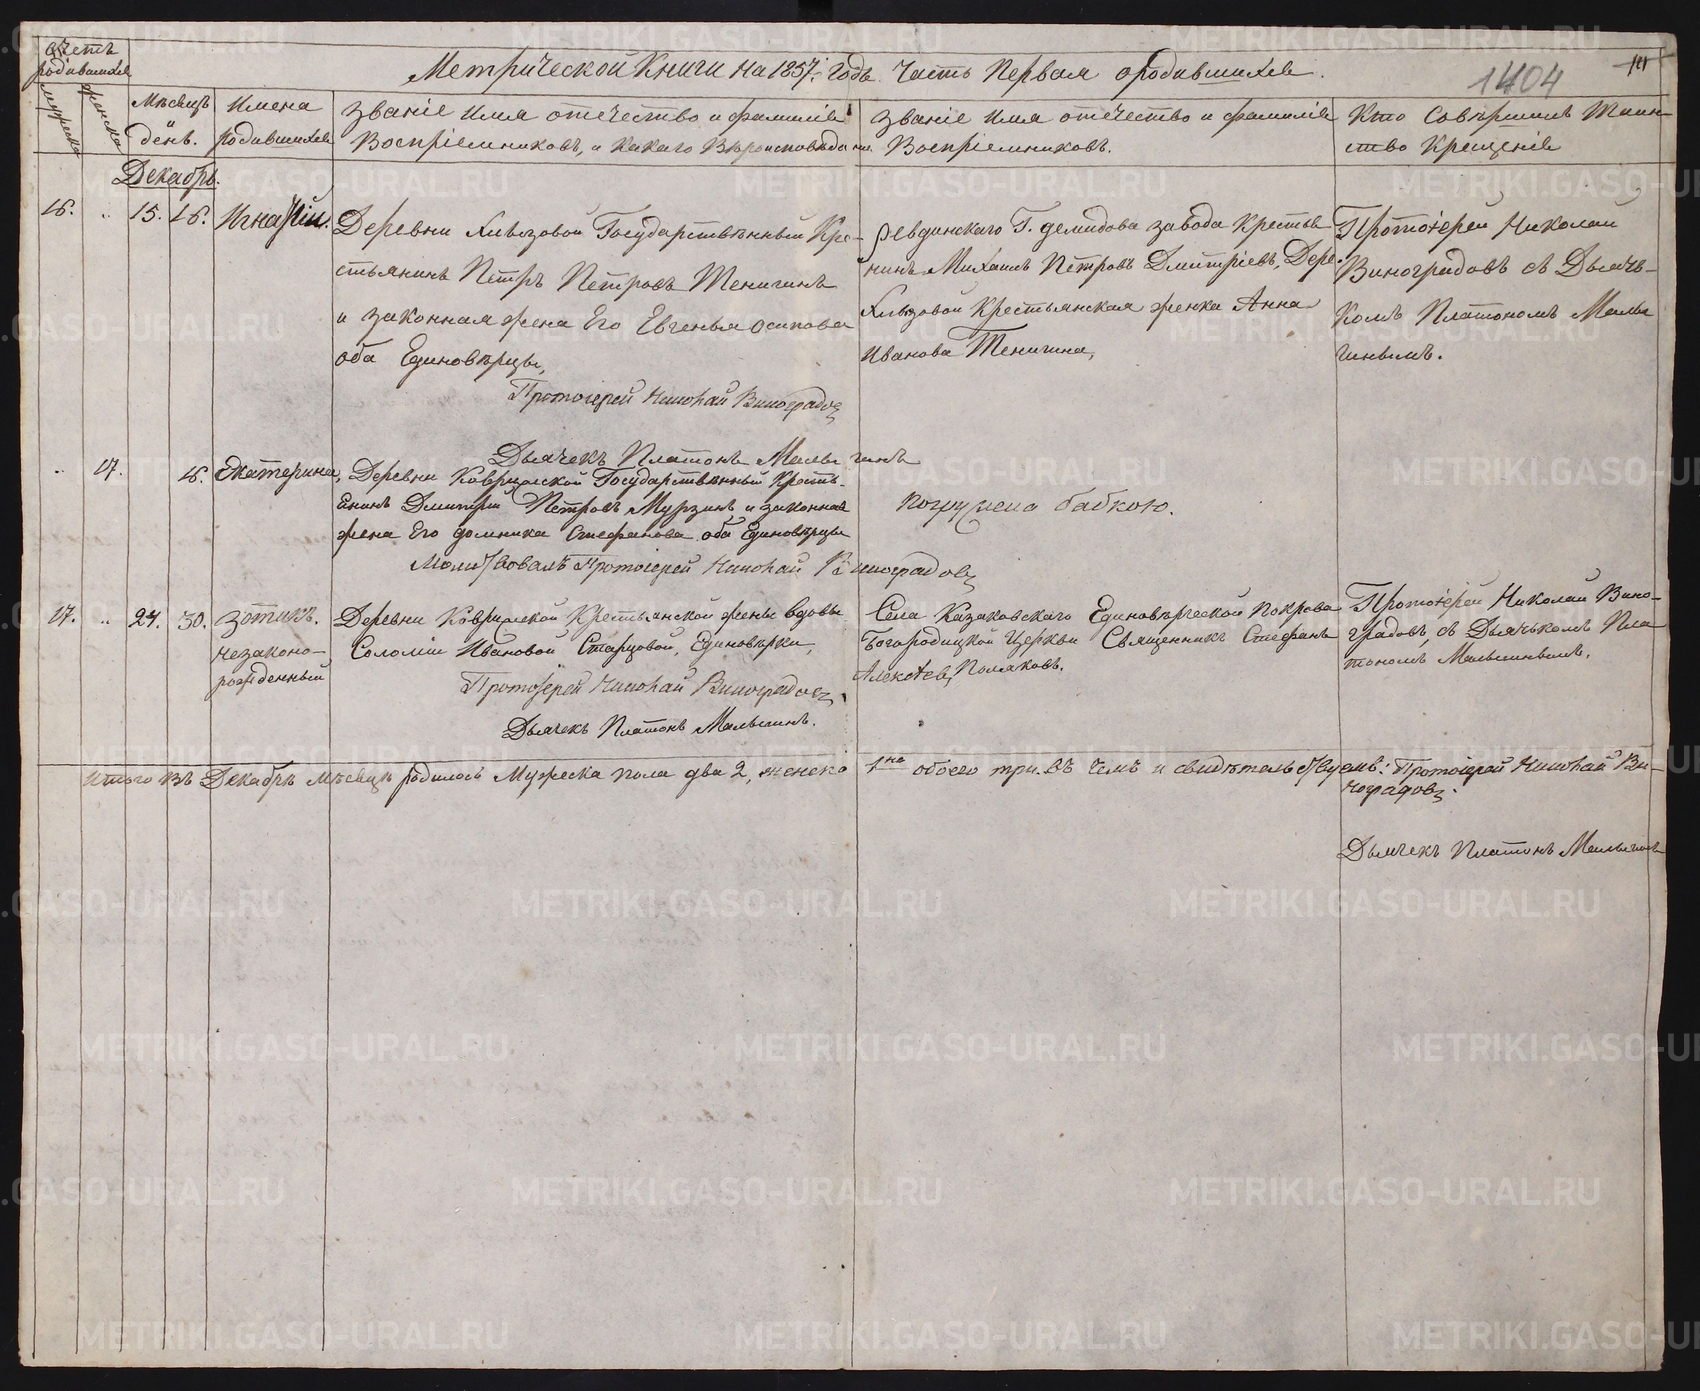 Счетъ
родившихся
Метрической Книги на 1857й годъ Часть Первая о родившихся.
1404
мужеска
женска
Мѣсяцъ
и
день.
Имена
родившихся
Званіе Имя отечество и фамилія
Воспріемниковъ, и какаго Вѣроисповѣданія
Званіе Имя отечество и фамилія
Воспріемниковъ.
Кто Совершилъ Таин-
ство Крещенія
Декабрь.
16. „ 15. 16. Игнатій.
Деревни Хлызовой Государственный Кре-
стьянинъ Петръ Петровъ Тенигинъ
и законная жена Его Евгенья Осипова
оба Единовѣрцы,
Протоіерей Николай Виноградовъ
Дьячекъ Платонъ Малыгинъ
Ревдинскаго Г. Демидова завода Крестья
нинъ Михаилъ Петровъ Дмитріевъ, Дере.
Хлызовой Крестьянская женка Анна
Иванова Тенигина,
Протоіерей Николай
Виноградовъ съ Дьячь-
комъ Платономъ Малы
гинымъ.
„ 17. 16. Екатерина,
Деревни Коврижской Государственный Кресть-
янинъ Дмитрій Петровъ Мурзинъ и законная
жена Его Домника Стефанова оба Единовѣрцы
Молитвовалъ Протоіерей Николай Виноградовъ
погружена бабкою.
17. „ 27. 30. Зотикъ.
незаконо-
рожденный
Деревни Коврижской Крестьянской жены вдовы
Соломіи Ивановой Старцовой, Единовѣрки,
Протоіерей Николай Виноградовъ
Дьячекъ Платонъ Малыгинъ.
Села Казаковскаго Единовѣрческой Покрова
Богородицкой Церкви Священникъ Стефанъ
Алексѣевъ Поляковъ.
Протоіерей Николай Вино-
градовъ, съ Дьячькомъ Пла
тономъ Малыгинымъ.
Итого въ Декабрѣ мѣсяцѣ родилось Мужеска пола два 2, женско 1на обоего три. Въ чемъ и свидѣтельствуемъ: Протоіерей Николай Ви-
ноградовъ.
Дьячекъ Платонъ Малыгинъ
METRIKI.GASO-URAL.RU